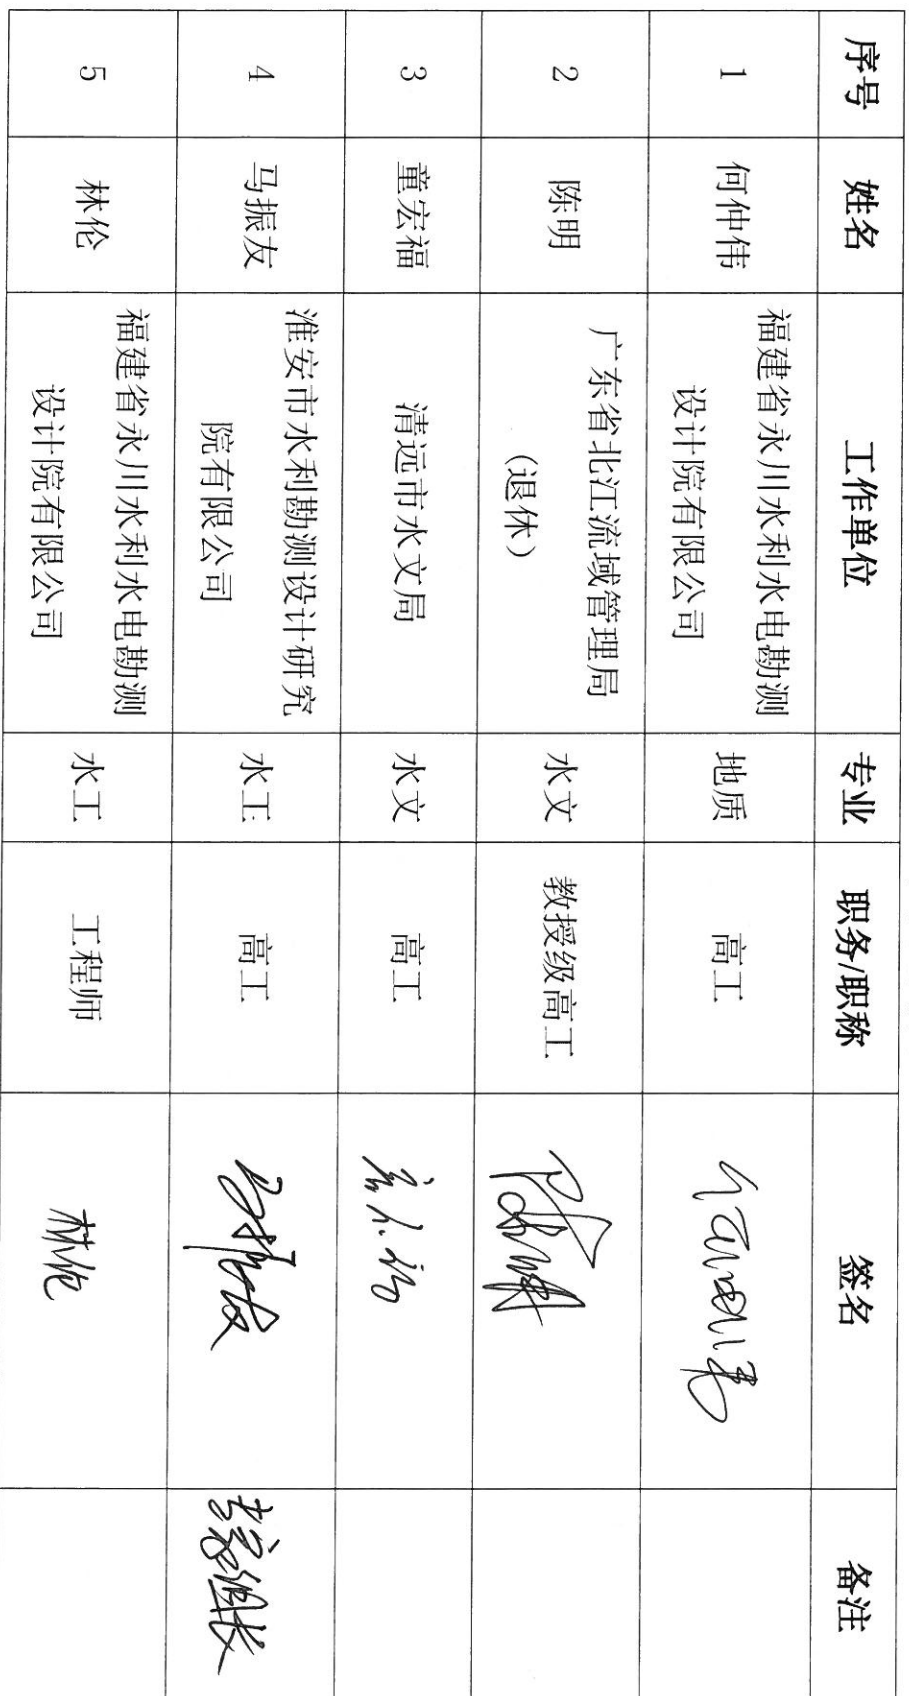 序号 姓名 工作单位 专业 职务/职称 签名 备注
1 何仲伟 福建省永川水利水电勘测
设计院有限公司 地质 高工
2 陈明 广东省北江流域管理局
（退休） 水文 教授级高工 陈明
3 童宏福 清远市水文局 水文 高工
4 马振友 淮安市水利勘测设计研究
院有限公司 水工 高工 马振友 专家组长
5 林伦 福建省永川水利水电勘测
设计院有限公司 水工 工程师 林伦